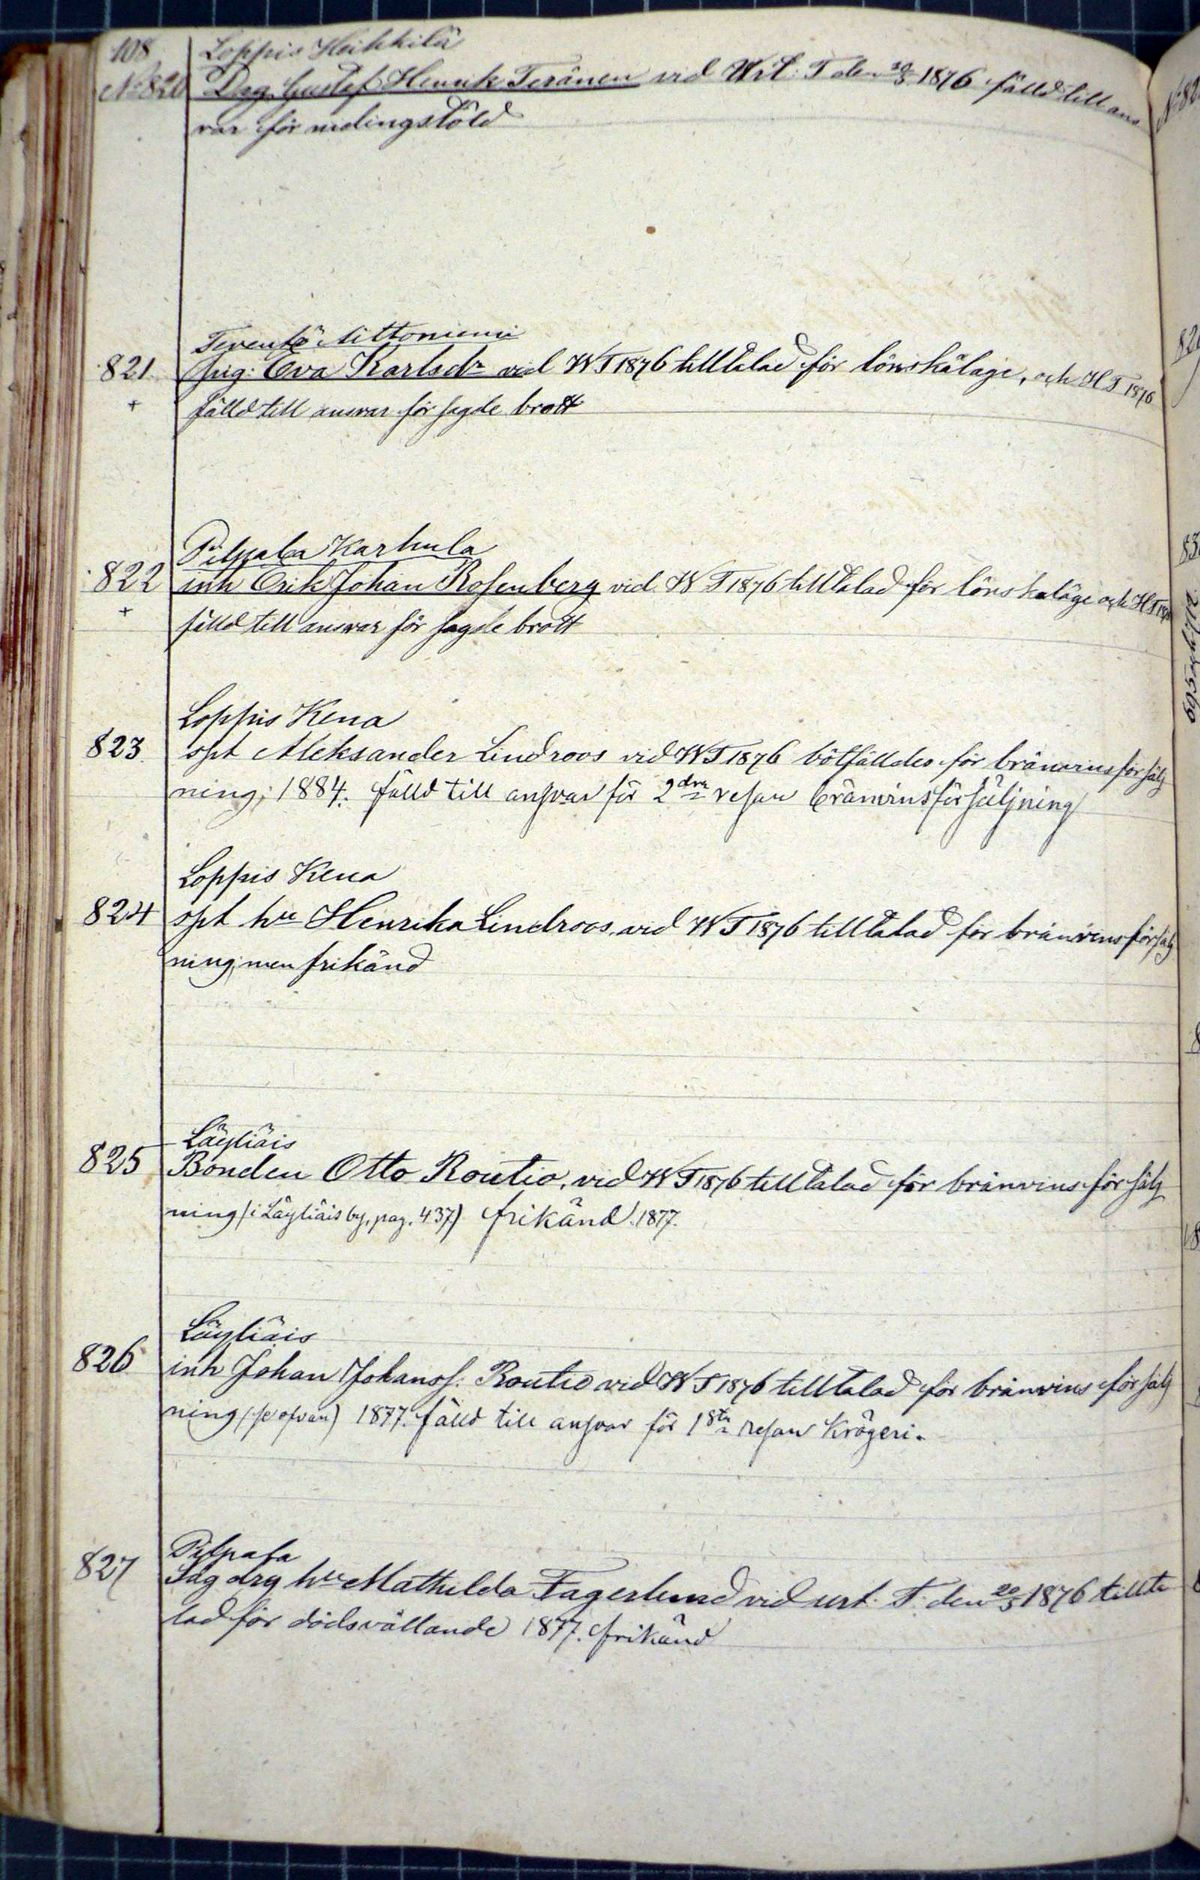 108
Loppis Heikkilä
No 820 Drg. Gustaf Henrik Teränen vid Urt. T den 20/3 1876 fälld till ans
var för nidingstöld
Terentö Aittoniemi
821 pig. Eva Karlsdr vid WT 1876 tilltalad för lönskaläge, och HT 1876
+ fälld till ansvar för sagde brott
Pilpala Karhula
822 inh Erik Johan Rosenberg vid WT 1876 tilltalad för lönskaläge och HT 1876
+ fälld till ansvar för sagde brott
Loppis Kena
823 spt Aleksander Lindroos vid WT 1876 bötfälldes för bränvinsförsälj
ning; 1884. fälld till ansvar för 2dra resan bränvinsförsäljning
Loppis Kena
824 spt hu Henrika Lindroos, vid WT 1876 tilltalad för bränvinsförsälj
ning, men frikänd
Läyliäis
825 Bonden Otto Routio, vid WT 1876 tilltalad för bränvinsförsälj
ning (i Läyliäis by, pag. 437) frikänd 1877.
Läyliäis
826 inh Johan Johanss. Routio vid WT 1876 tilltalad för bränvinsförsälj
ning (se ofvan) 1877. fälld till ansvar för 1sta resan Krögeri.
Pilpala
827 Såg drg hu Mathilda Fagerlund vid urt. T. den 20/3 1876 tillta
lad för dödsvållande 1877. frikänd